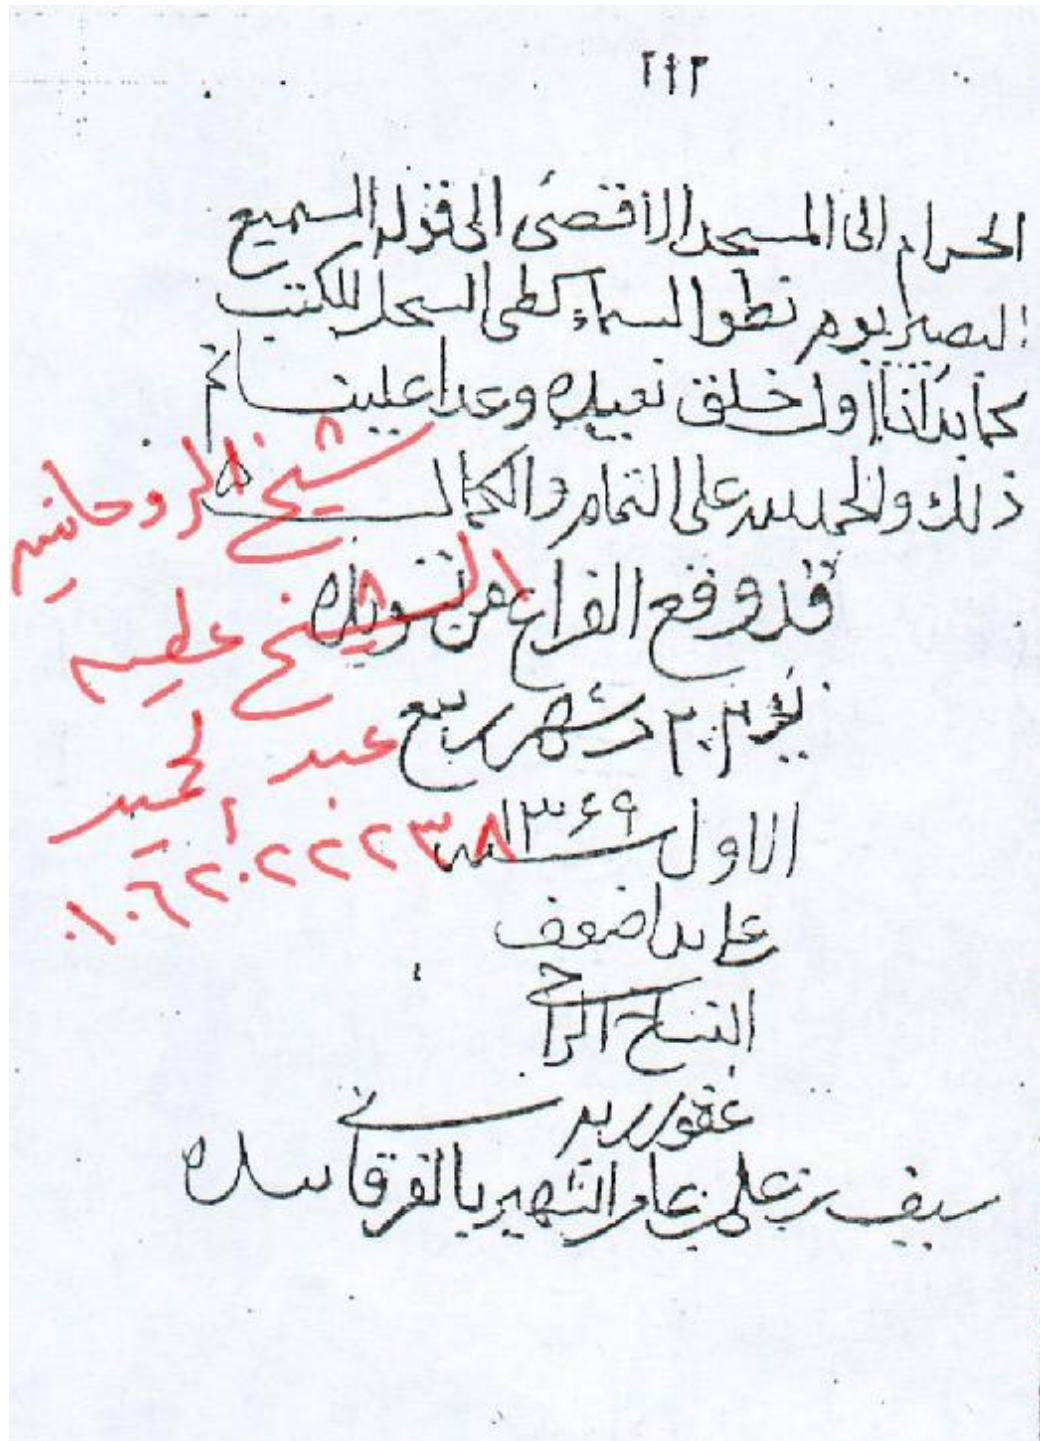 ٢١٢
الحرام الى المسجد الاقصى الى قوله السميع
البصير يوم نطوا السماء كطي السجل للكتب
كما بدأنا اول خلق نعيده وعدا علينا تم
ذلك والحمد لله على التمام والكمال
قد وقع الفراغ من تسويده
٢٠ شهر ربيع
الاول سنة ١٣٦٩
على يد اضعف
النساخ الراجي
غفور ربه
سيف بن علي بن عامر الشهير بالفرقاني
شيخ الروحانيه
الشيخ عطيه
عبد الحميد
٠١٠٦٢٠٢٢٢٣٨